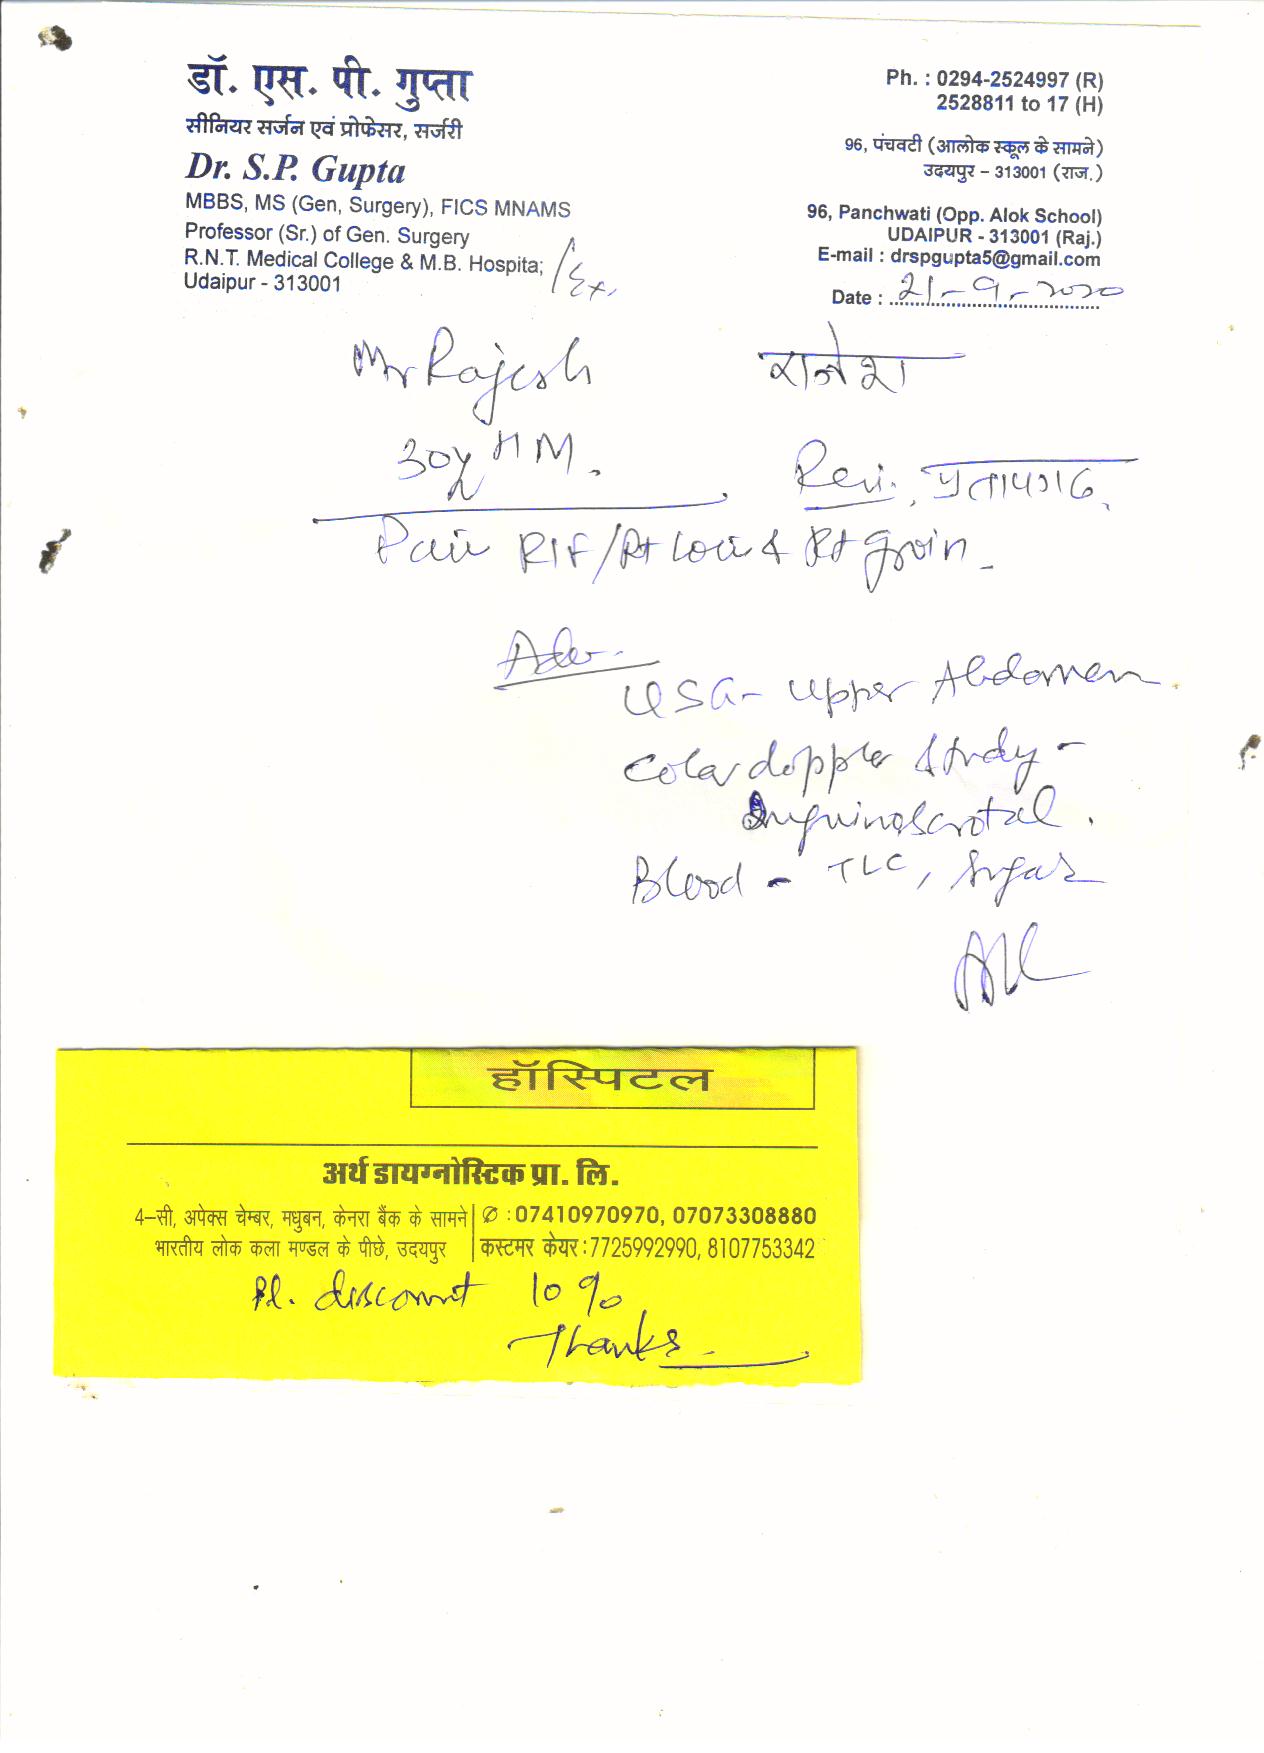 डॉ. एस. पी. गुप्ता
सीनियर सर्जन एवं प्रोफेसर, सर्जरी
Dr. S.P. Gupta
MBBS, MS (Gen, Surgery), FICS MNAMS
Professor (Sr.) of Gen. Surgery
R.N.T. Medical College & M.B. Hospita;
Udaipur - 313001
/Ex.
Ph. : 0294-2524997 (R)
2528811 to 17 (H)
96, पंचवटी (आलोक स्कूल के सामने)
उदयपुर – 313001 (राज.)
96, Panchwati (Opp. Alok School)
UDAIPUR - 313001 (Raj.)
E-mail : drspgupta5@gmail.com
Date : 21-9-2020
Mr Rajesh राजेश
30y HM. प्रतापगढ़
Pain RIF/Rt Loin & Rt groin
Adv.
USG- Upper Abdomen
Color doppler Study -
Inguinoscrotal.
Blood - TLC, Sugar
हॉस्पिटल
अर्थ डायग्नोस्टिक प्रा. लि.
4–सी, अपेक्स चेम्बर, मधुबन, केनरा बैंक के सामने ✆ : 07410970970, 07073308880
भारतीय लोक कला मण्डल के पीछे, उदयपुर कस्टमर केयर : 7725992990, 8107753342
Pl. discount 10%
Thanks